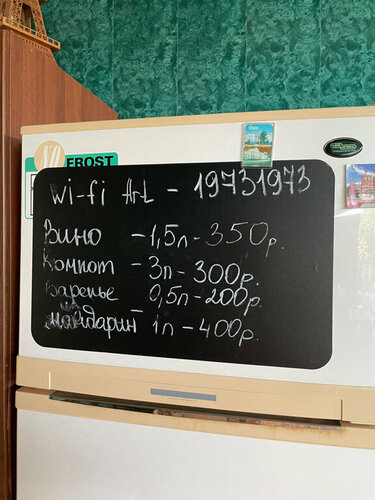 NO
FROST
wi-fi Art - 19731973
Вино - 1,5л - 350р.
Компот - 3л - 300р.
Варенье 0,5л - 200р.
мандарин 1л - 400р.